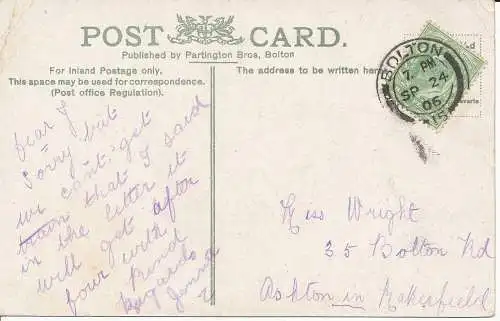 POST CARD.
Published by Partington Bros, Bolton
For Inland Postage only.
This space may be used for correspondence.
(Post office Regulation).
The address to be written here
BOLTON
7. PM
SP 24
06
15
Dear J
Sorry but
we cant get
train that I said
in the letter it
will get after
four with
kind
Regards
Jennie
Miss Wright
35 Bolton Rd
Ashton in Makerfield